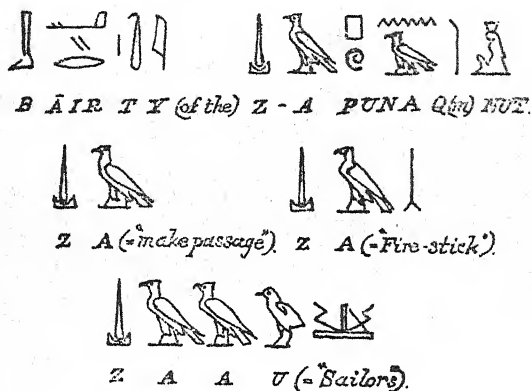 B ĀIR T Y (of the) Z - A PUNA Q(m) NUT.
Z A (= "make passage"). Z A (= "Fire-stick").
Z A A U (= "Sailors").